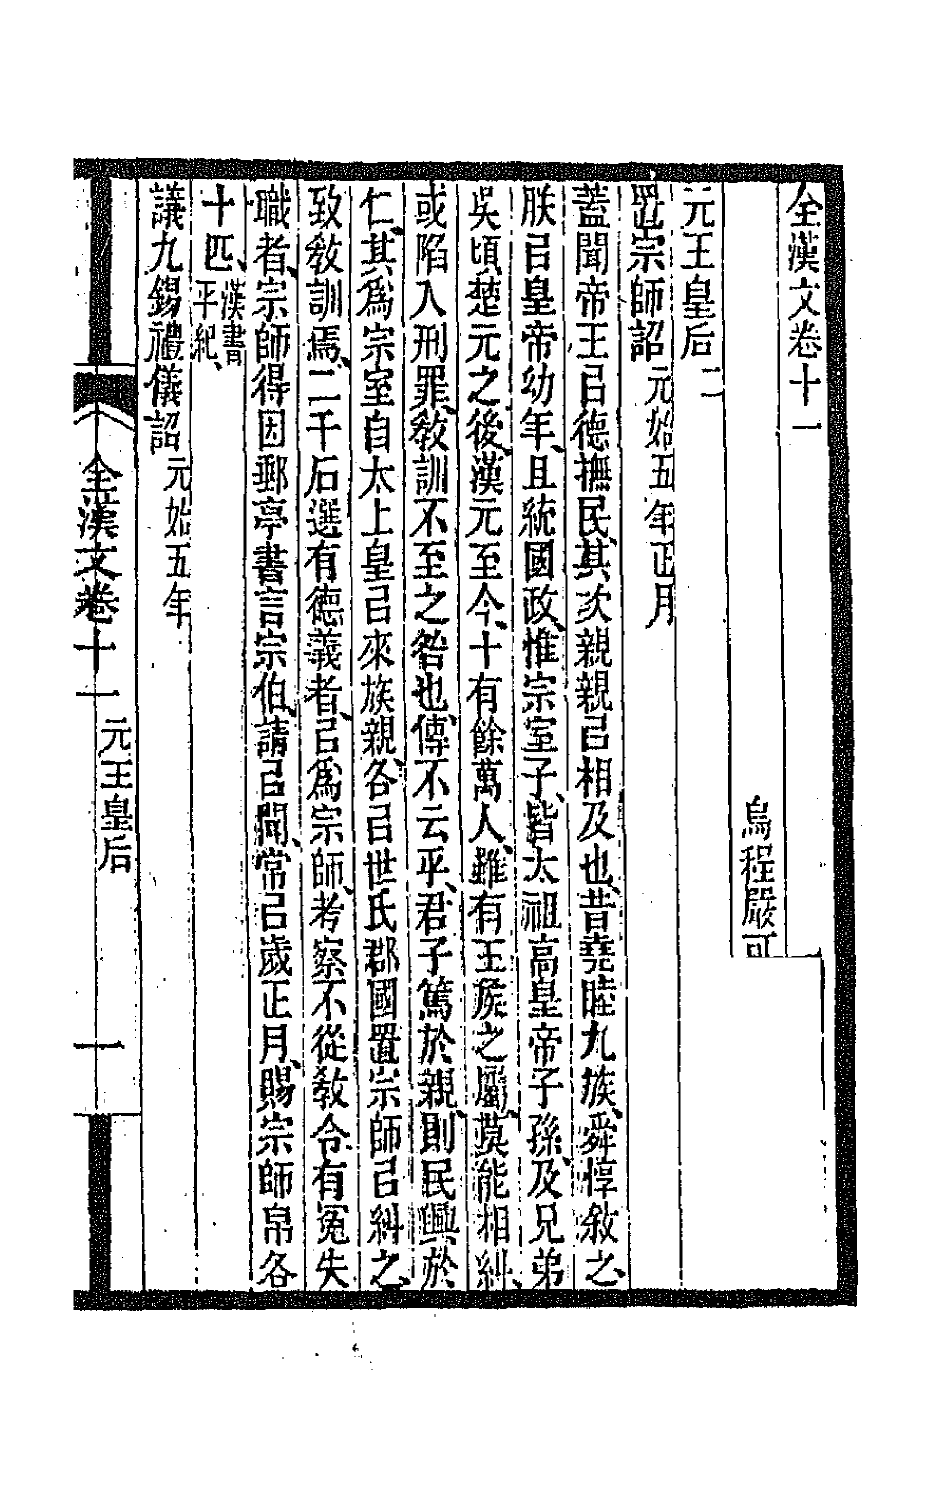 全漢文卷十一
烏程嚴可
元王皇后二
置宗師詔元始五年正月
蓋聞帝王㠯德撫民、其次親親㠯相及也、昔堯睦九族、舜惇敘之、
朕㠯皇帝幼年、且統國政、惟宗室子、皆太祖高皇帝子孫、及兄弟
吳頃、楚元之後、漢元至今、十有餘萬人、雖有王矦之屬、莫能相糾、
或陷入刑罪、敎訓不至之咎也、傳不云乎、君子篤於親、則民興於
仁、其爲宗室自太上皇㠯來族親、各㠯世氏郡國置宗師㠯糾之、
致敎訓焉、二千石選有德義者、㠯爲宗師、考察不從敎令有冤失
職者、宗師得因郵亭書言宗伯、請㠯聞、常㠯歲正月、賜宗師帛各
十匹、漢書平紀、
議九錫禮儀詔元始五年
全漢文卷十一 元王皇后 一